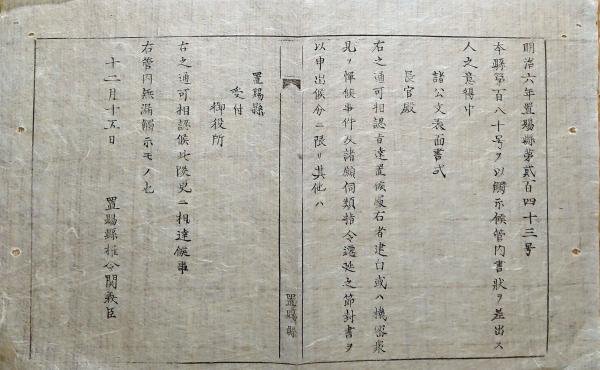 明治六年置賜縣第貳百四十三号
本縣第百八十号ヲ以觸示候管内書状ヲ差出ス
人之意得中
諸公文表面書式
長官殿
右之通可相認旨達置候處右者建白或ハ機密衆
見ヲ憚候事件及諸願伺類指令遷延之節封書ヲ
以申出候分ニ限リ其他ハ
置賜縣
置賜縣
受付
御役所
右之通可相認候此段更ニ相達候事
右管内無漏觸示モノ也
十二月十五日
置賜縣権令関義臣